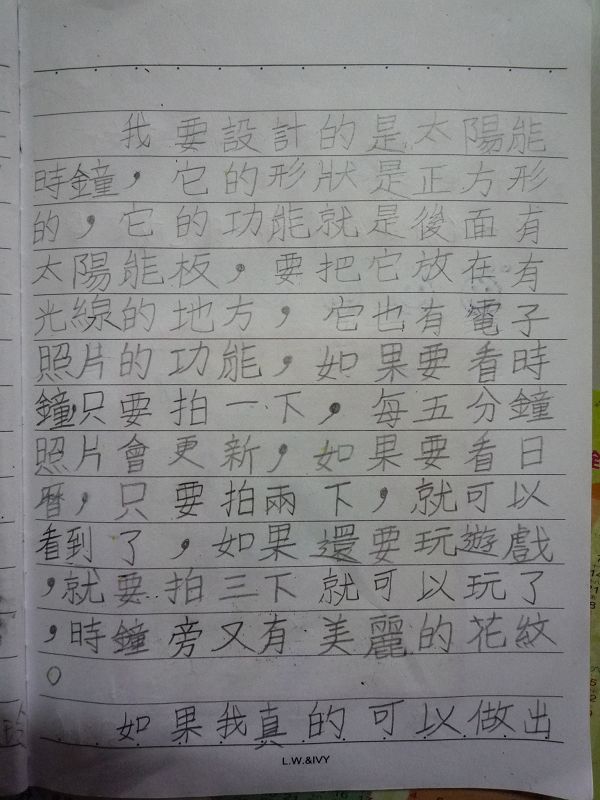 我要設計的是太陽能
時鐘，它的形狀是正方形
的，它的功能就是後面有
太陽能板，要把它放在有
光線的地方，它也有電子
照片的功能，如果要看時
鐘，只要拍一下，每五分鐘
照片會更新，如果要看日
曆，只要拍兩下，就可以
看到了，如果還要玩遊戲
，就要拍三下就可以玩了
，時鐘旁又有美麗的花紋
。
如果我真的可以做出
L.W.&IVY